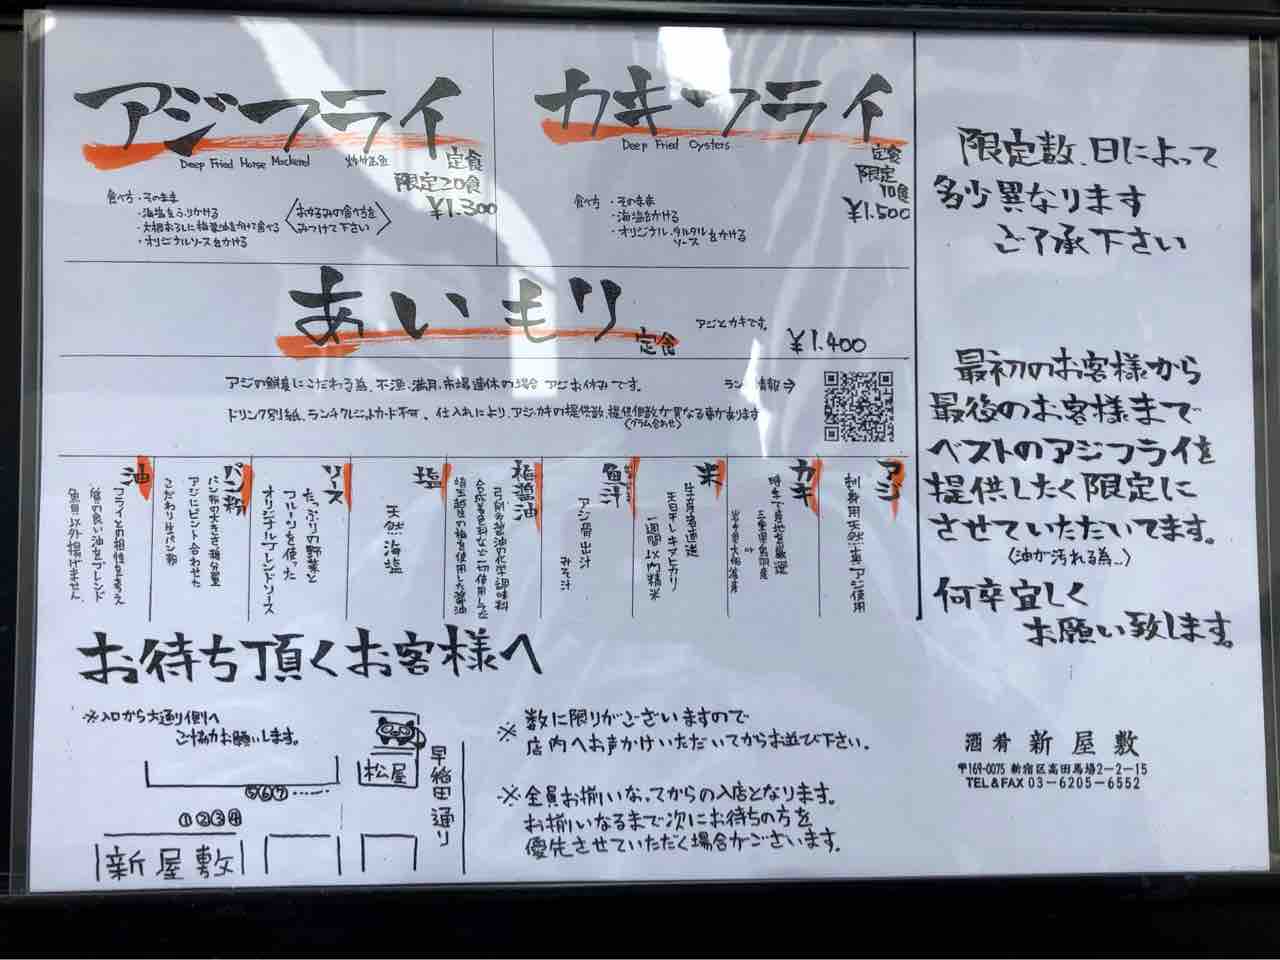 アジフライ
Deep Fried Horse Mackerel
定食
限定20食
¥1.300
食べ方・そのまま
・海塩をふりかける
・大根おろしに梅醤油をかけて食べる
・オリジナルソースをかける
〈お好みの食べ方を
みつけて下さい〉
カキフライ
Deep Fried Oysters
定食
限定
10食
¥1.500
食べ方・そのまま
・海塩をかける
・オリジナル タルタル
ソースをかける
あいもり
定食
アジとカキです。
¥1.400
アジの鮮度にこだわる為、不漁、満月、市場連休の場合 アジお休みです。
ドリンク別紙、ランチクレジットカード不可、仕入れにより、アジ・カキの提供数、提供個数が異なる事があります
〈グラム合わせ〉
アジ
刺身用天然真アジ使用
カキ
時季で産地を厳選
三重県鳥羽産
or
米
生産者直送
五百川 キヌヒカリ
一週間以内精米
魚汁
アジ骨出汁
みそ汁
梅醤油
合成着色料など一切使用してない
埼玉越生の梅を使用した醤油
塩
天然海塩
ソース
たっぷりの野菜と
フルーツを使った
オリジナルブレンドソース
パン粉
パン粉の大きさ、糖分量
アジにピント合わせた
こだわり生パン粉
油
フライとの相性を考え
質の良い油をブレンド
魚貝以外揚げません
限定数、日によって
多少異なります
ご了承下さい
最初のお客様から
最後のお客様まで
ベストのアジフライを
提供したく限定に
させていただいてます。
〈油が汚れる為…〉
何卒宜しく
お願い致します。
お待ち頂くお客様へ
※入口から大通り側へ
ご協力お願いします。
松屋
早稲田通り
⑤⑥⑦……
①②③④
新屋敷
※数に限りがございますので
店内へお声かけいただいてからお並び下さい。
※全員お揃いなってからの入店となります。
お揃いなるまで次にお待ちの方を
優先させていただく場合がございます。
酒肴 新屋敷
〒169-0075 新宿区高田馬場2-2-15
TEL&FAX 03-6205-6552